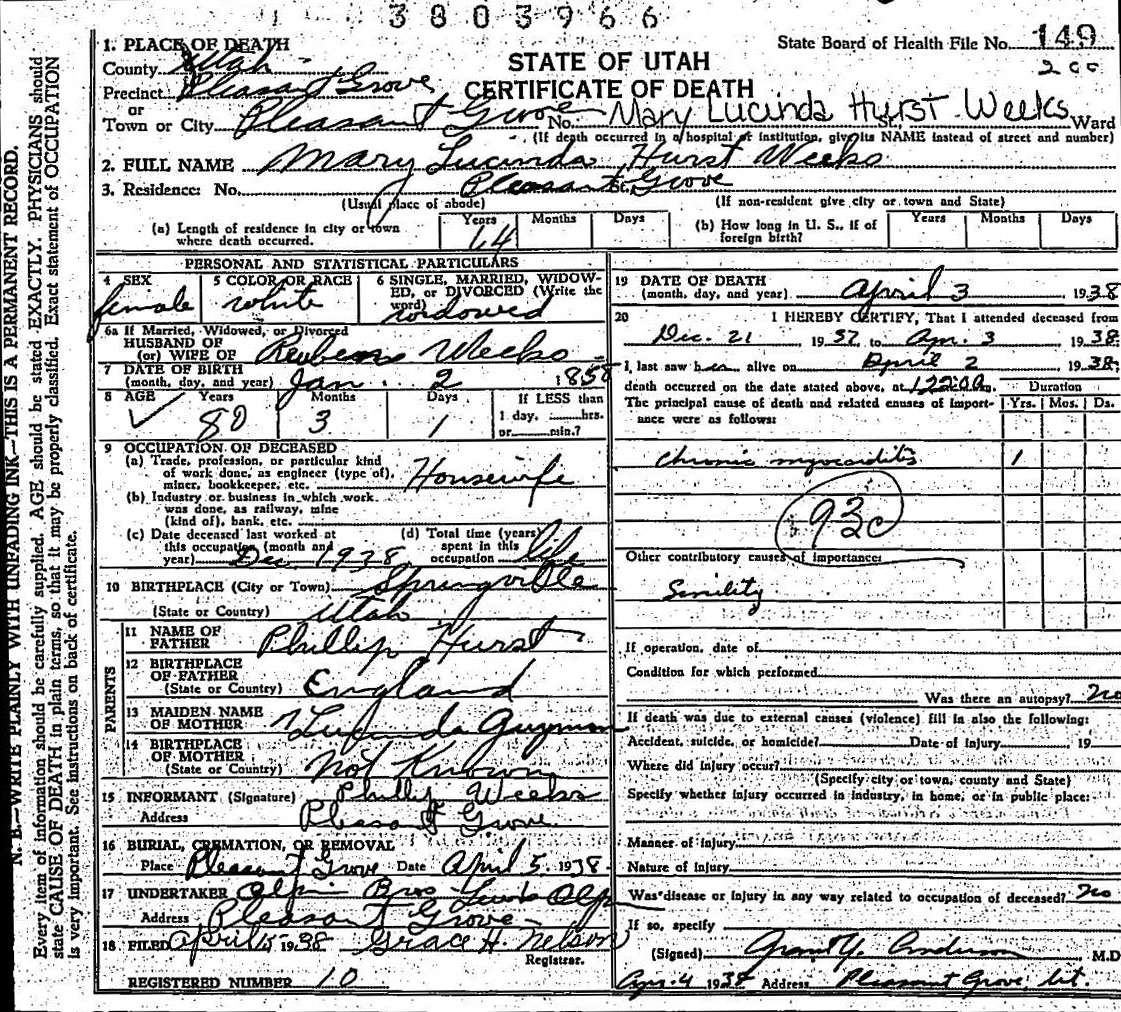 3803966
1. PLACE OF DEATH
County Utah
Precinct Pleasant Grove
or
Town or City Pleasant Grove No. Mary Lucinda Hurst Weeks Ward
STATE OF UTAH
CERTIFICATE OF DEATH
State Board of Health File No. 149
200
(If death occurred in a hospital or institution, give its NAME instead of street and number)
2. FULL NAME Mary Lucinda Hurst Weeks
3. Residence: No. Pleasant Grove St.
(Usual place of abode) (If non-resident give city or town and State)
(a) Length of residence in city or town where death occurred. Years 64 Months Days
(b) How long in U. S., if of foreign birth? Years Months Days
PERSONAL AND STATISTICAL PARTICULARS
4 SEX female
5 COLOR OR RACE white
6 SINGLE, MARRIED, WIDOWED, or DIVORCED (Write the word) widowed
6a If Married, Widowed, or Divorced
HUSBAND OF
(or) WIFE OF Reuben Weeks
7 DATE OF BIRTH
(month, day, and year) Jan. 2 1858
8 AGE Years 80 Months 3 Days 1 If LESS than
1 day, hrs.
or min.?
9 OCCUPATION OF DECEASED
(a) Trade, profession, or particular kind
of work done, as engineer (type of),
miner, bookkeeper, etc. Housewife
(b) Industry or business in which work
was done, as railway, mine
(kind of), bank, etc.
(c) Date deceased last worked at
this occupation (month and
year) Dec. 1938
(d) Total time (years)
spent in this
occupation life
10 BIRTHPLACE (City or Town) Springville
(State or Country) Utah
PARENTS
11 NAME OF
FATHER Phillip Hurst
12 BIRTHPLACE
OF FATHER
(State or Country) England
13 MAIDEN NAME
OF MOTHER Lucinda Guzman
14 BIRTHPLACE
OF MOTHER
(State or Country) Not Known
15 INFORMANT (Signature) Phillip Weeks
Address Pleasant Grove
16 BURIAL, CREMATION, OR REMOVAL
Place Pleasant Grove Date April 5. 1938
17 UNDERTAKER Olpin Bros
Address Pleasant Grove
18 FILED April 15 1938 Grace H. Nelson
Registrar.
REGISTERED NUMBER 10
19 DATE OF DEATH
(month, day, and year) April 3 1938
20 I HEREBY CERTIFY, That I attended deceased from
Dec. 21 1937 to Apr. 3 1938
I, last saw her alive on April 2 1938;
death occurred on the date stated above, at 12:20 a m. Duration
The principal cause of death and related causes of importance were as follows: Yrs. Mos. Ds.
chronic myocarditis 1
93c
Other contributory causes of importance:
Senility
If operation, date of
Condition for which performed
Was there an autopsy? no
If death was due to external causes (violence) fill in also the following:
Accident, suicide, or homicide? Date of injury 19
Where did injury occur?
(Specify city or town, county and State)
Specify whether injury occurred in industry, in home, or in public place:
Manner of injury
Nature of injury
Was disease or injury in any way related to occupation of deceased? no
If so, specify
(Signed) Grant Y. Anderson M.D
Apr. 4 1938 Address Pleasant Grove, Ut.
N. B.—WRITE PLAINLY WITH UNFADING INK—THIS IS A PERMANENT RECORD.
Every item of information should be carefully supplied. AGE should be stated EXACTLY. PHYSICIANS should
state CAUSE OF DEATH in plain terms, so that it may be properly classified. Exact statement of OCCUPATION
is very important. See instructions on back of certificate.